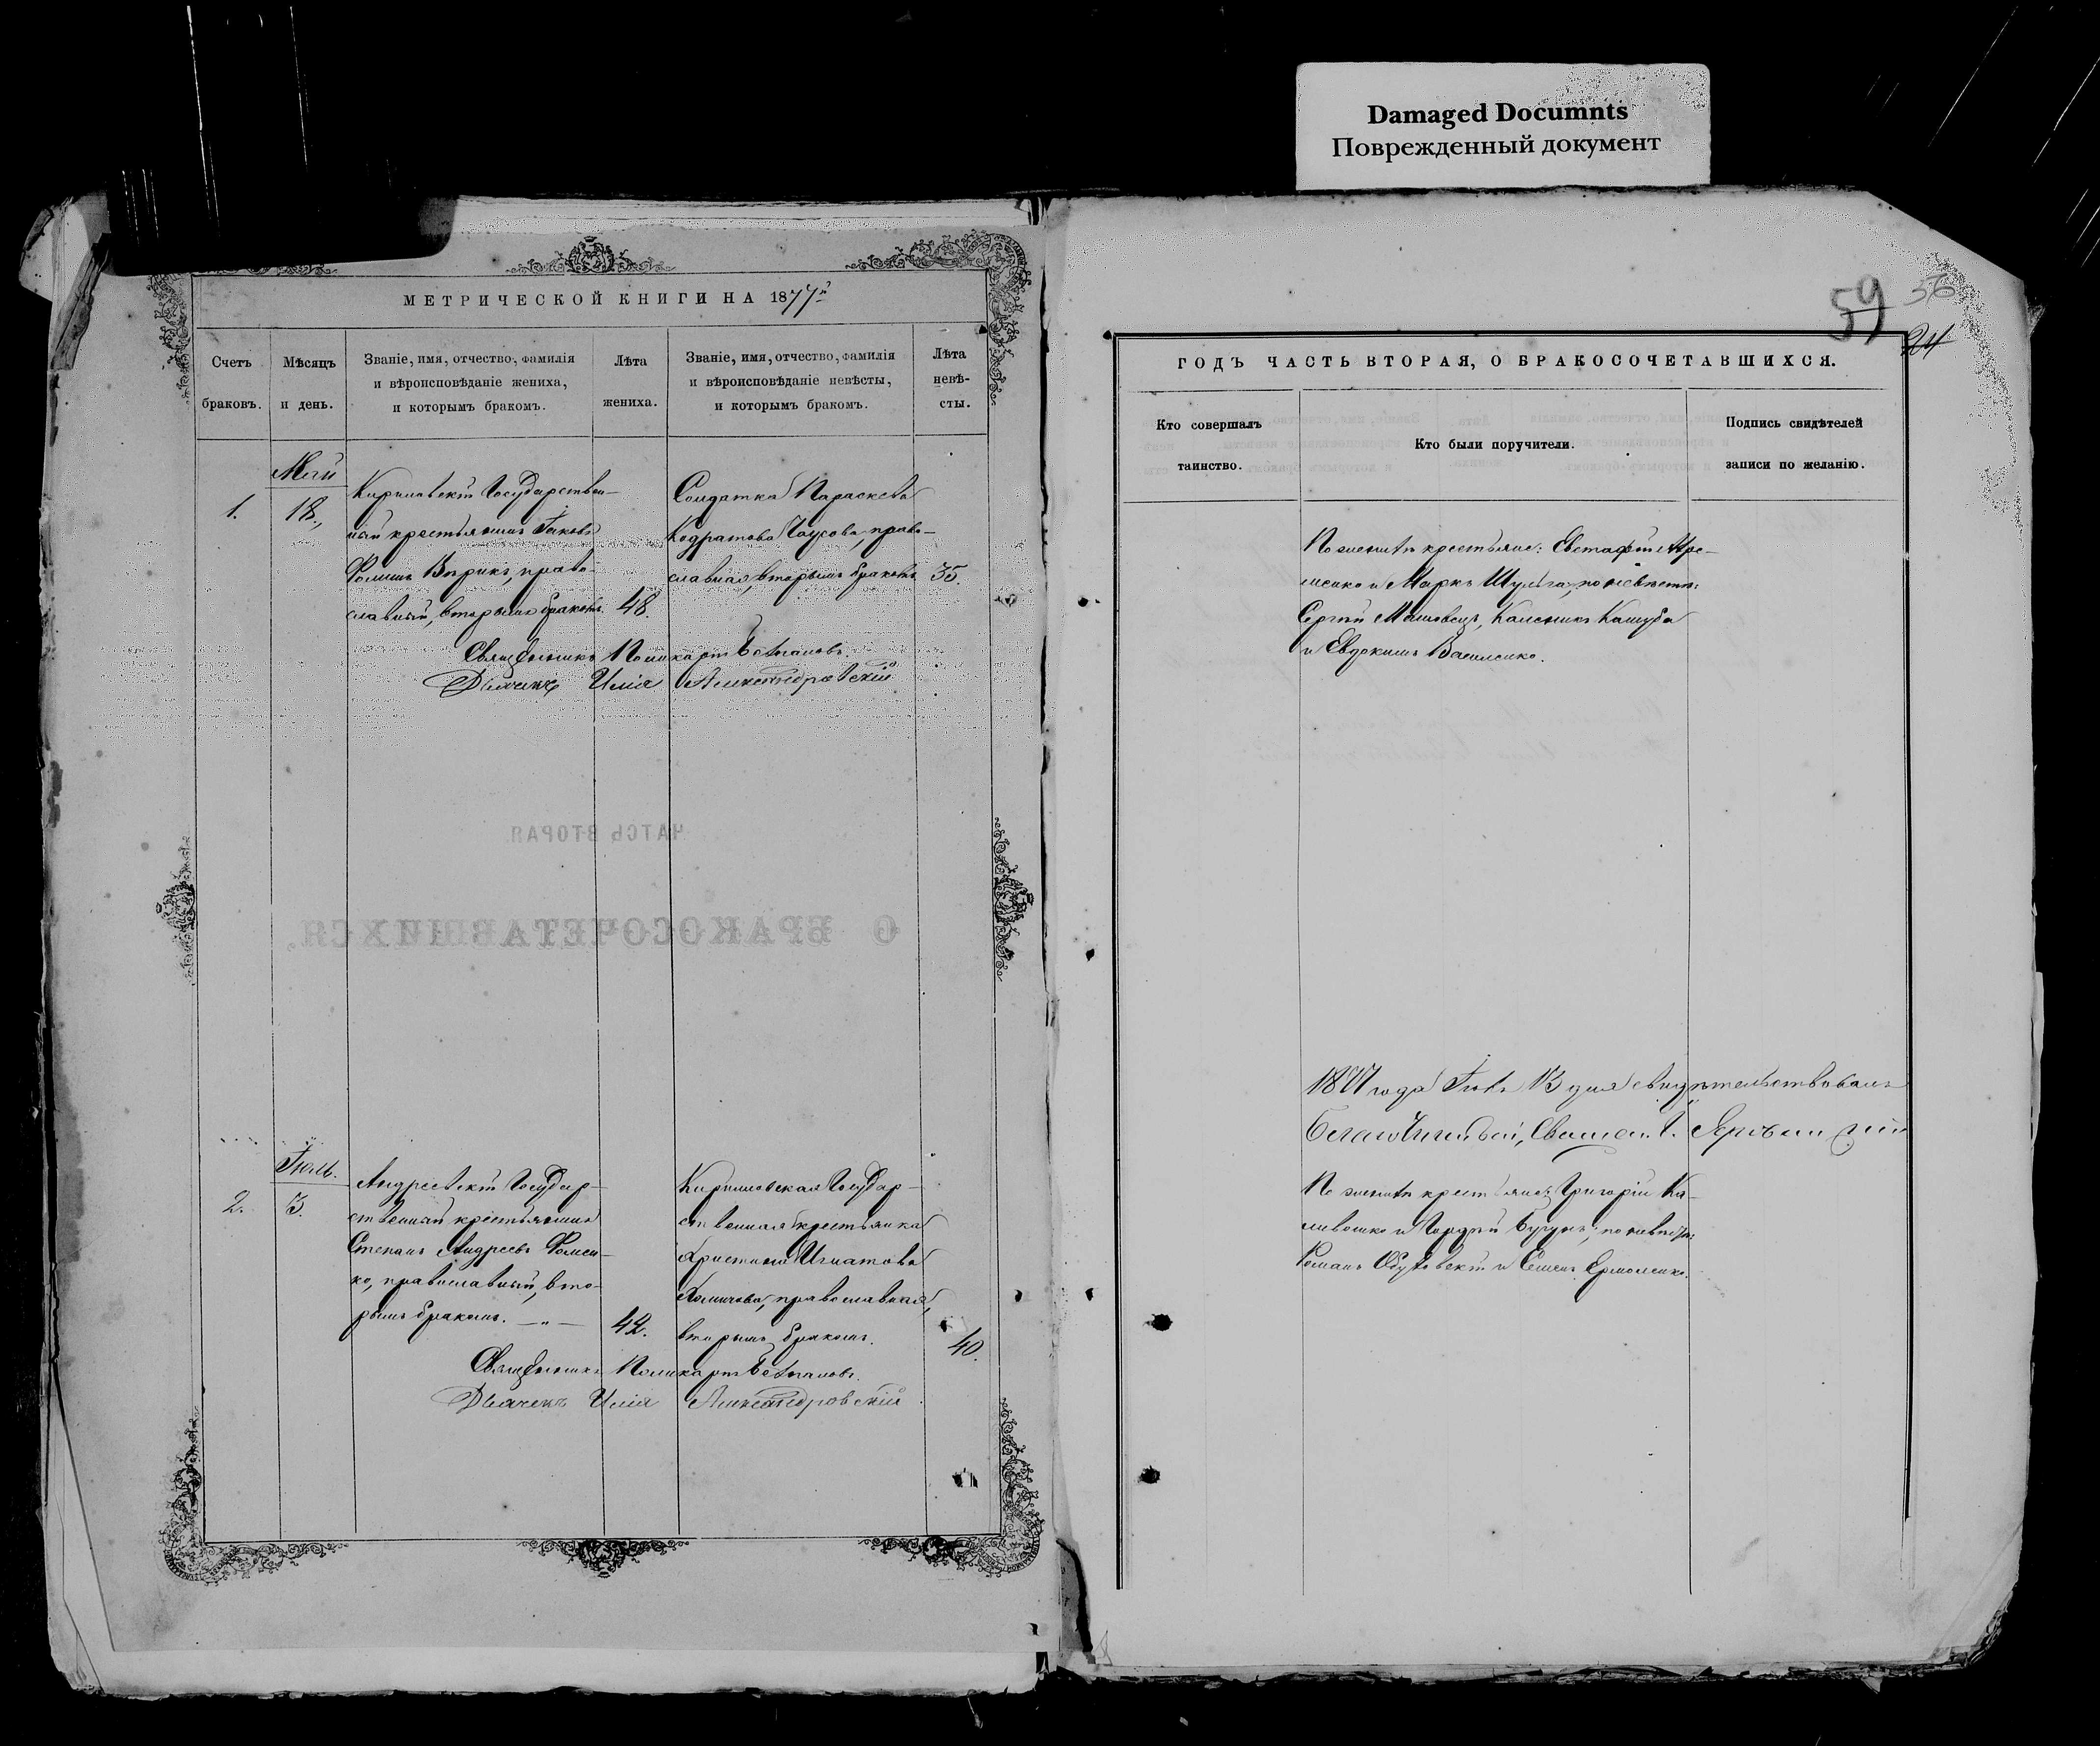 Damaged Documnts
Поврежденный документ
МЕТРИЧЕСКОЙ КНИГИ НА 1877й
Счетъ браковъ.
Мѣсяцъ и день.
Званіе, имя, отчество, фамилія
и вѣроисповѣданіе жениха,
и которымъ бракомъ.
Лѣта жениха.
Званіе, имя, отчество, фамилія
и вѣроисповѣданіе невѣсты,
и которымъ бракомъ.
Лѣта невѣ-
сты.
Май
1.
18.
Кириловскій Государствен-
ный крестьянинъ Іаковъ
Фоминъ Вирикъ, право-
славный, вторымъ бракомъ.
48.
Солдатка Параскева
Кодратова Чаусова, право-
славная, вторымъ бракомъ.
35.
Священникъ Поликарпъ
Дьячекъ Илія Александровскій
ЧАТСЬ ВТОРАЯ
О БРАКОСОЧЕТАВШИХСЯ.
Іюль.
2.
3.
Андреевскій Государ-
ственный крестьянинъ
Степанъ Андреевъ Фомен-
ко, православный, вто-
рымъ бракомъ. — „ —
42.
Кириловская Государ-
ственная крестьянка
Христина Игнатова
православная,
вторымъ бракомъ.
40.
Священникъ Поликарпъ
Дьячекъ Илія Александровскій
59
56
24
ГОДЪ ЧАСТЬ ВТОРАЯ, О БРАКОСОЧЕТАВШИХСЯ.
Кто совершалъ
таинство.
Кто были поручители.
Подпись свидѣтелей
записи по желанію.
По женихѣ крестьяне: Евстафій
и Маркъ Шульга, по невѣстѣ:
Сергѣй Калениκъ Кашуба
и Евдокимъ Василенко.
1877 года 13 дня свидѣтельствовалъ
Благочинный, Священ.
По женихѣ крестьяне: Григорій Ка-
и Гордѣй по невѣстѣ:
Романъ и Семенъ Ермоленко.